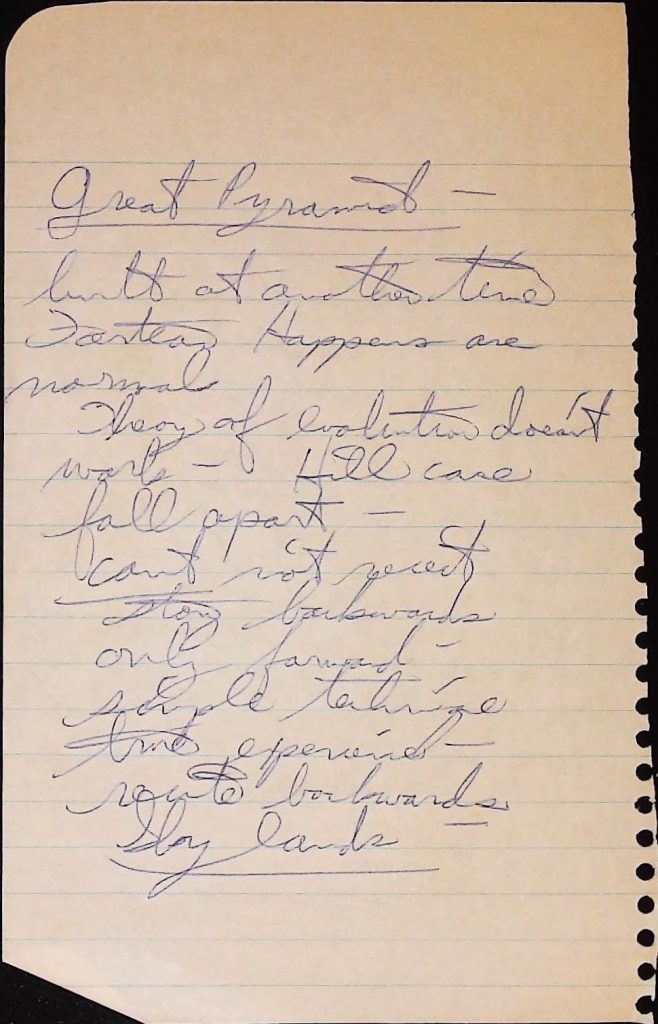 Great Pyramid -
built at another time
Happens are
normal
Theory of evolution doesn't
work - Hill case
fall apart -
can't not recit
story backwards
only forward -
simple technique
true experience -
recite backwards
Story lands -